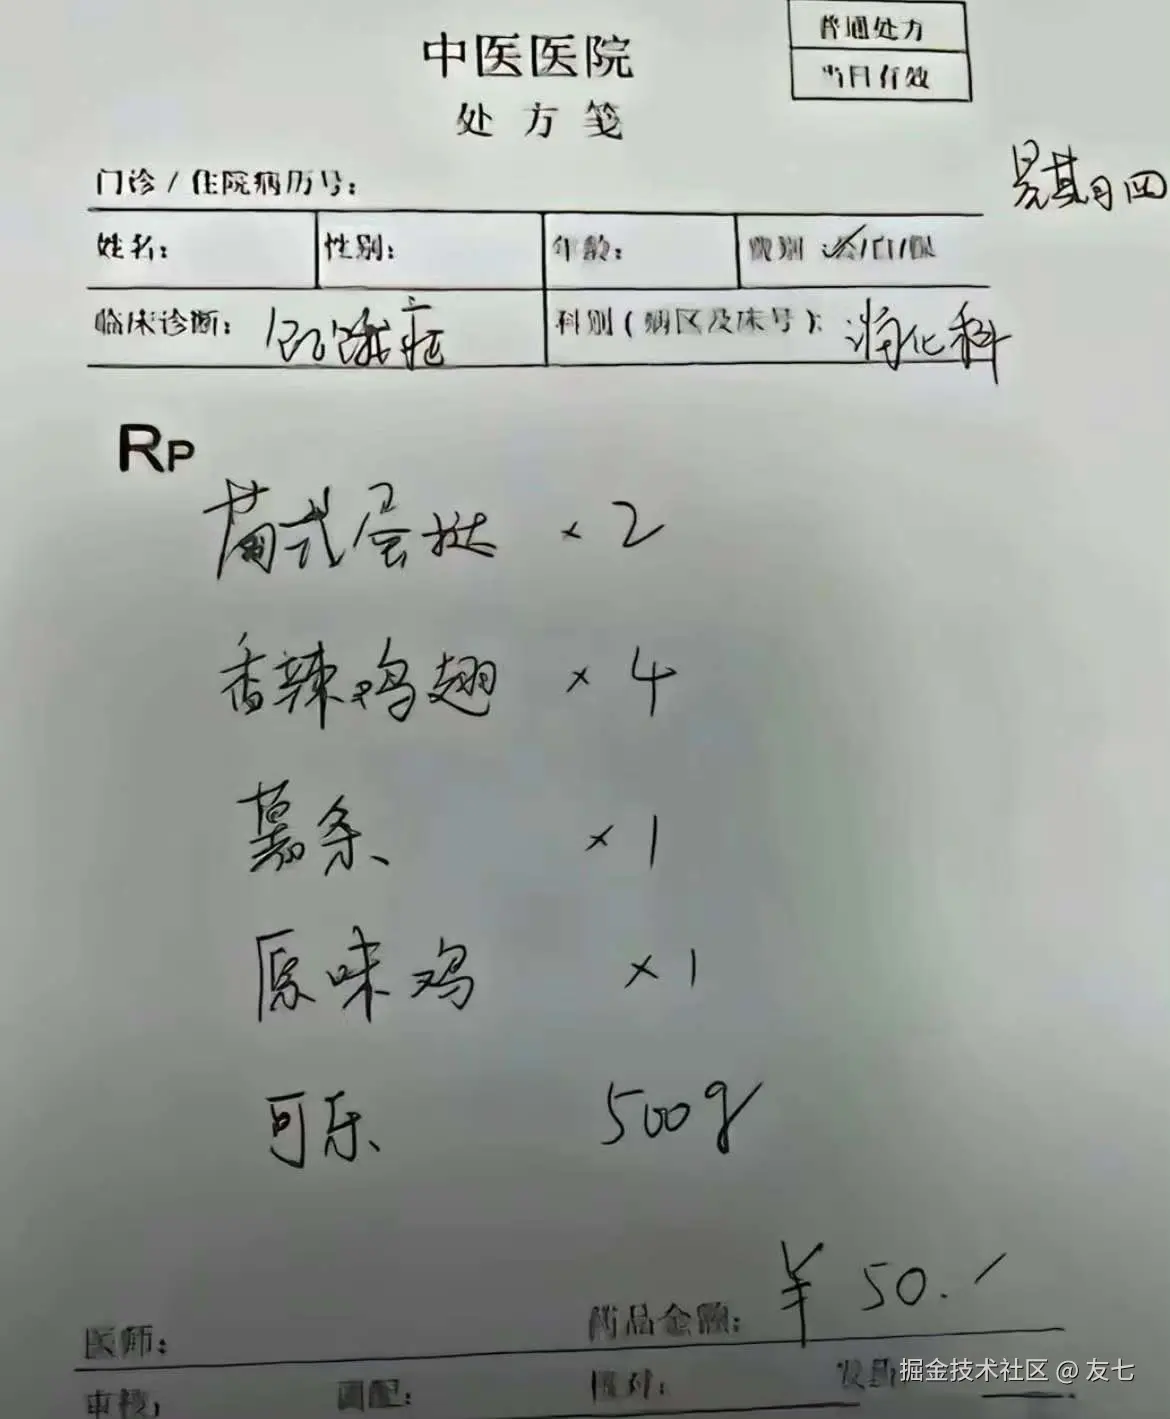 普通处方
当日有效
中医医院
处方笺
星期四
门诊/住院病历号:
姓名: 性别: 年龄: 费别
临床诊断: 饥饿症 科别(病区及床号): 消化科
RP
葡式蛋挞 × 2
香辣鸡翅 × 4
薯条 × 1
原味鸡 × 1
可乐 500g
药品金额: ¥ 50.
医师:
审核: 调配: 核对: 发药:
掘金技术社区 @ 友七